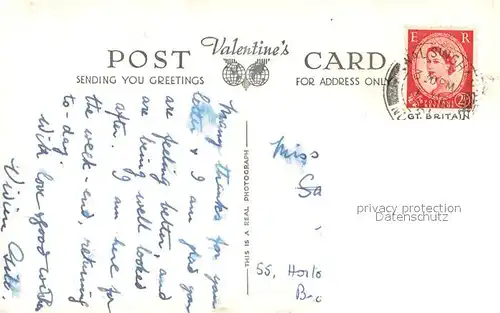 POST Valentine's CARD
SENDING YOU GREETINGS
FOR ADDRESS ONLY
E R
2½
GT. BRITAIN
Many thanks for your
letter & I am glad you
are feeling better, and
are being well looked
after. I am here for
the week-end, returning
to-day.
With love & good wishes
Vivien
THIS IS A REAL PHOTOGRAPH
Miss
55, Horto
privacy protection
Datenschutz